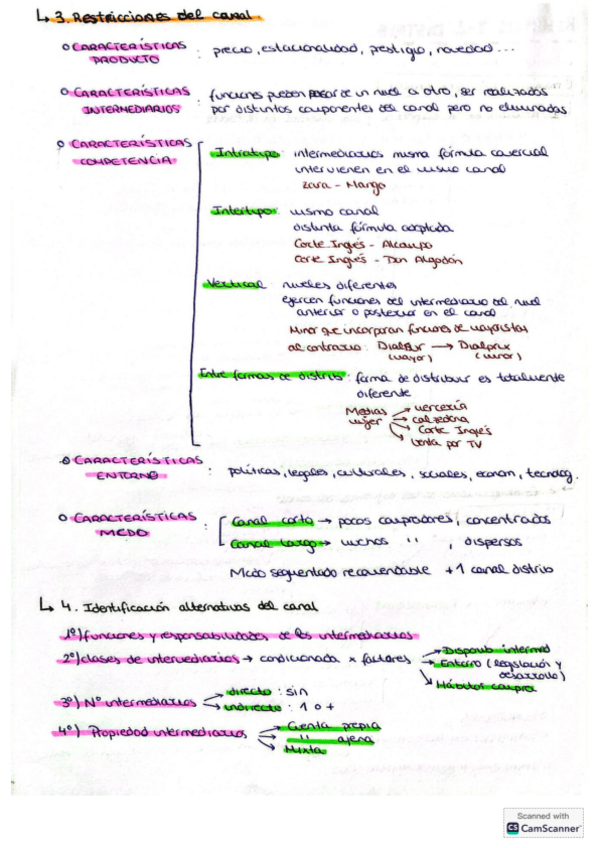 ↳ 3. Restricciones del canal
○ CARACTERÍSTICAS PRODUCTO : precio, estacionalidad, prestigio, novedad...
○ CARACTERÍSTICAS INTERMEDIARIOS : funciones pueden pasar de un nivel a otro, ser realizadas
por distintos componentes del canal pero no eliminadas
○ CARACTERÍSTICAS COMPETENCIA
Intratipo: intermediarios misma fórmula comercial
intervienen en el mismo canal
Zara - Mango
Intertipo: mismo canal
distinta fórmula adoptada
Corte Inglés - Alcampo
Corte Inglés - Don Algodón
Vertical: niveles diferentes
ejercen funciones del intermediario del nivel
anterior o posterior en el canal
Minor que incorporan funciones de mayoristas
al contrario: Dialsur → Dialprix
(mayor) (minor)
Entre formas de distrib: forma de distribuir es totalmente
diferente
Medias mujer → mercería
→ calzedonia
→ Corte Inglés
→ Venta por TV
○ CARACTERÍSTICAS ENTORNO : políticas, legales, culturales, sociales, econom, tecnolog.
○ CARACTERÍSTICAS MCDO :
Canal corto → pocos compradores, concentrados
Canal largo → muchos " , dispersos
Mcdo segmentado recomendable +1 canal distrib
↳ 4. Identificación alternativas del canal
1º) funciones y responsabilidades de los intermediarios
2º) clases de intermediarios → condicionada x factores
→ Disponib intermed
→ Entorno (legislación y
desarrollo)
→ Hábitos compra
3º) Nº intermediarios
→ directo: sin
→ indirecto: 1 o +
4º) Propiedad intermediarios
→ Cuenta propia
→ " ajena
→ Mixta
Scanned with
CS CamScanner